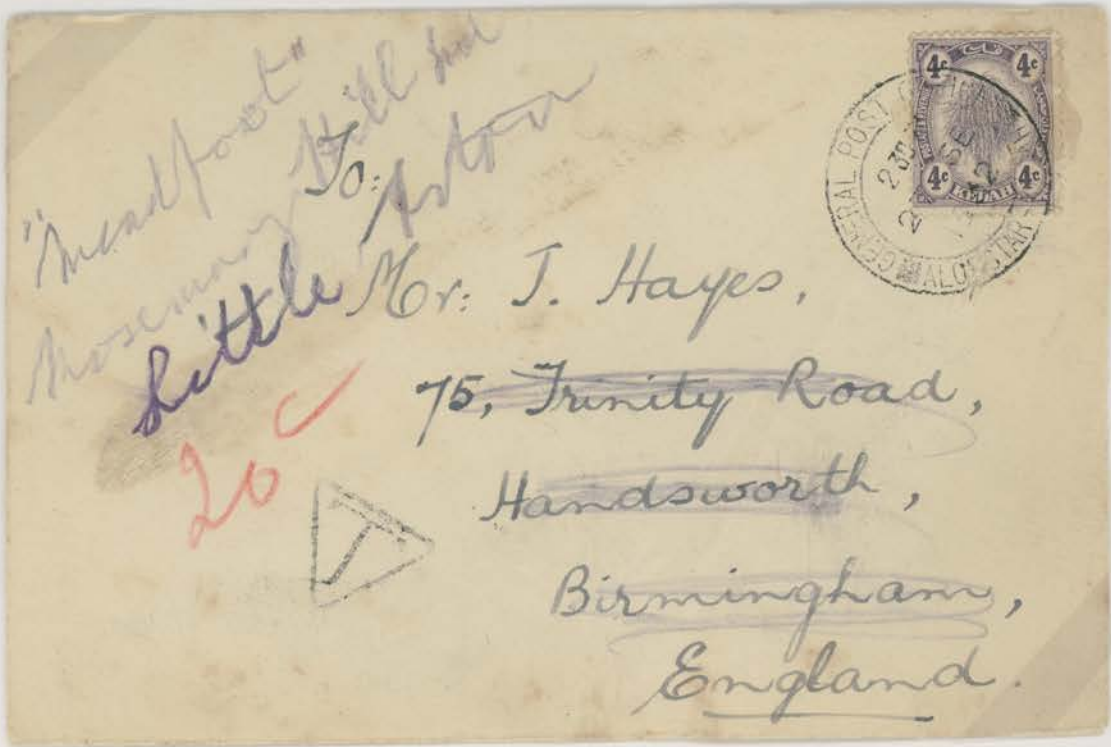 "Meadfoot"
Rosemary Hill Rd
Little Aston
To:
Mr: J. Hayes,
75, Trinity Road,
Handsworth,
Birmingham,
England.
20 c
T
4c 4c
4c 4c
KEDAH
GENERAL POST
ALOR STAR
2 30